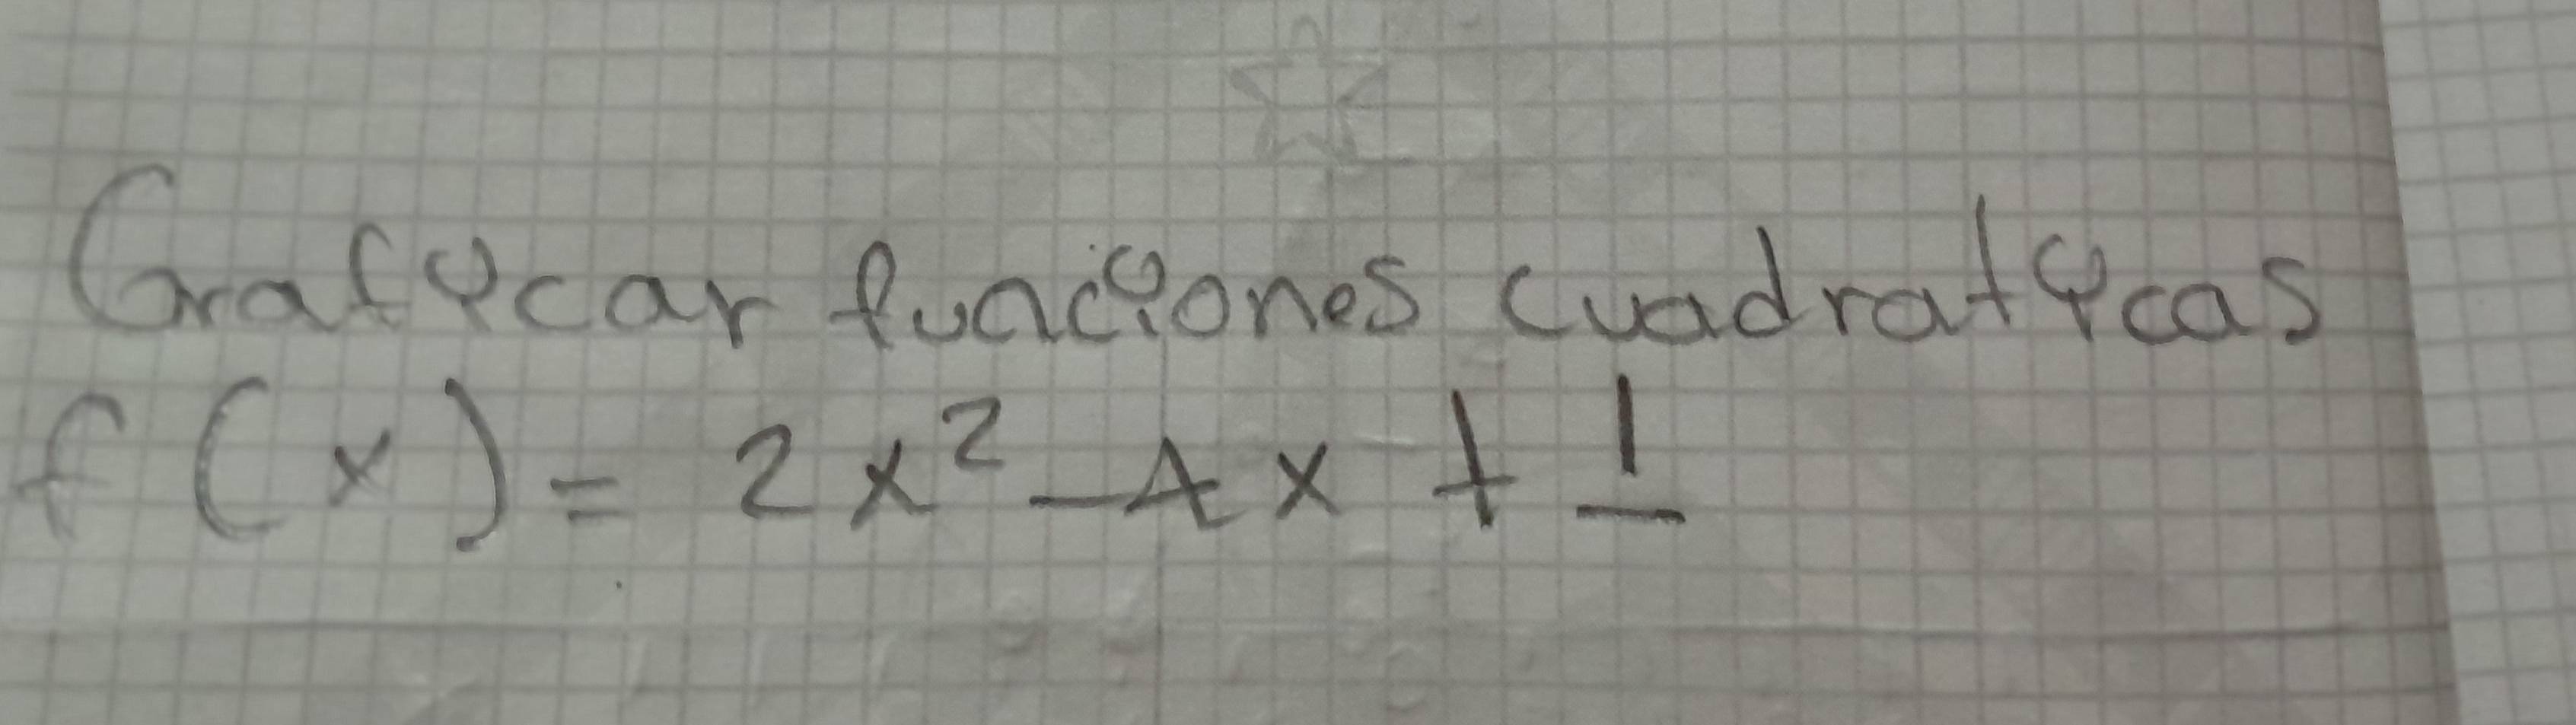 Graficar funciones cuadraticas
f(x) = 2x² - 4x + 1